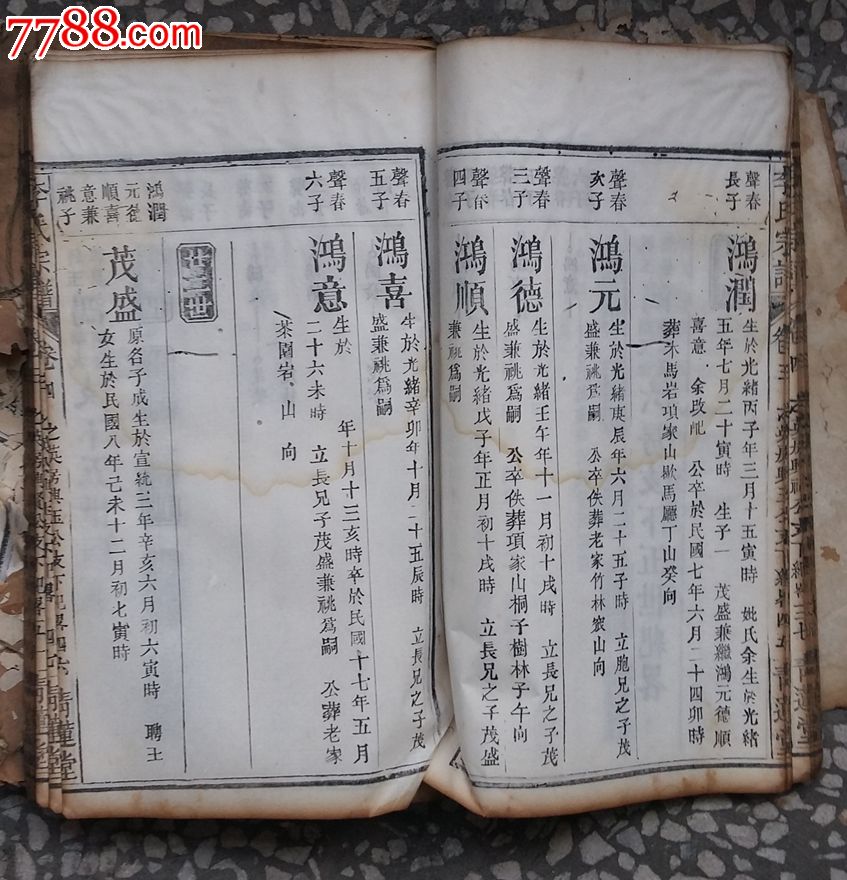 7788.com
李氏宗譜
聲春
長子
鴻潤
生於光緒丙子年三月十五寅時 妣氏余生於光緒
五年七月二十寅時 生子一 茂盛兼繼鴻元德順
喜意 余改配 公卒於民國七年六月二十四卯時
葬木馬岩項家山歇馬廳丁山癸向
聲春
次子
鴻元
生於光緒庚辰年六月二十五子時 立胞兄之子茂
盛兼祧為嗣 公卒佚葬老家竹林窝山向
聲春
三子
鴻德
生於光緒壬午年十一月初十戌時 立長兄之子茂
盛兼祧為嗣 公卒佚葬項家山桐子樹林子午向
聲春
四子
鴻順
生於光緒戊子年正月初十戌時 立長兄之子茂盛
兼祧為嗣
聲春
五子
鴻喜
生於光緒辛卯年十月二十五辰時 立長兄之子茂
盛兼祧為嗣
聲春
六子
鴻意
生於 年十月十三亥時卒於民國十七年五月
二十六未時 立長兄子茂盛兼祧為嗣 公葬老家
茶園岩 山向
鴻潤
元德
順喜
意兼
祧子
茂盛
原名子成生於宣統三年辛亥六月初六寅時 聘王
女生於民國八年己未十二月初七寅時